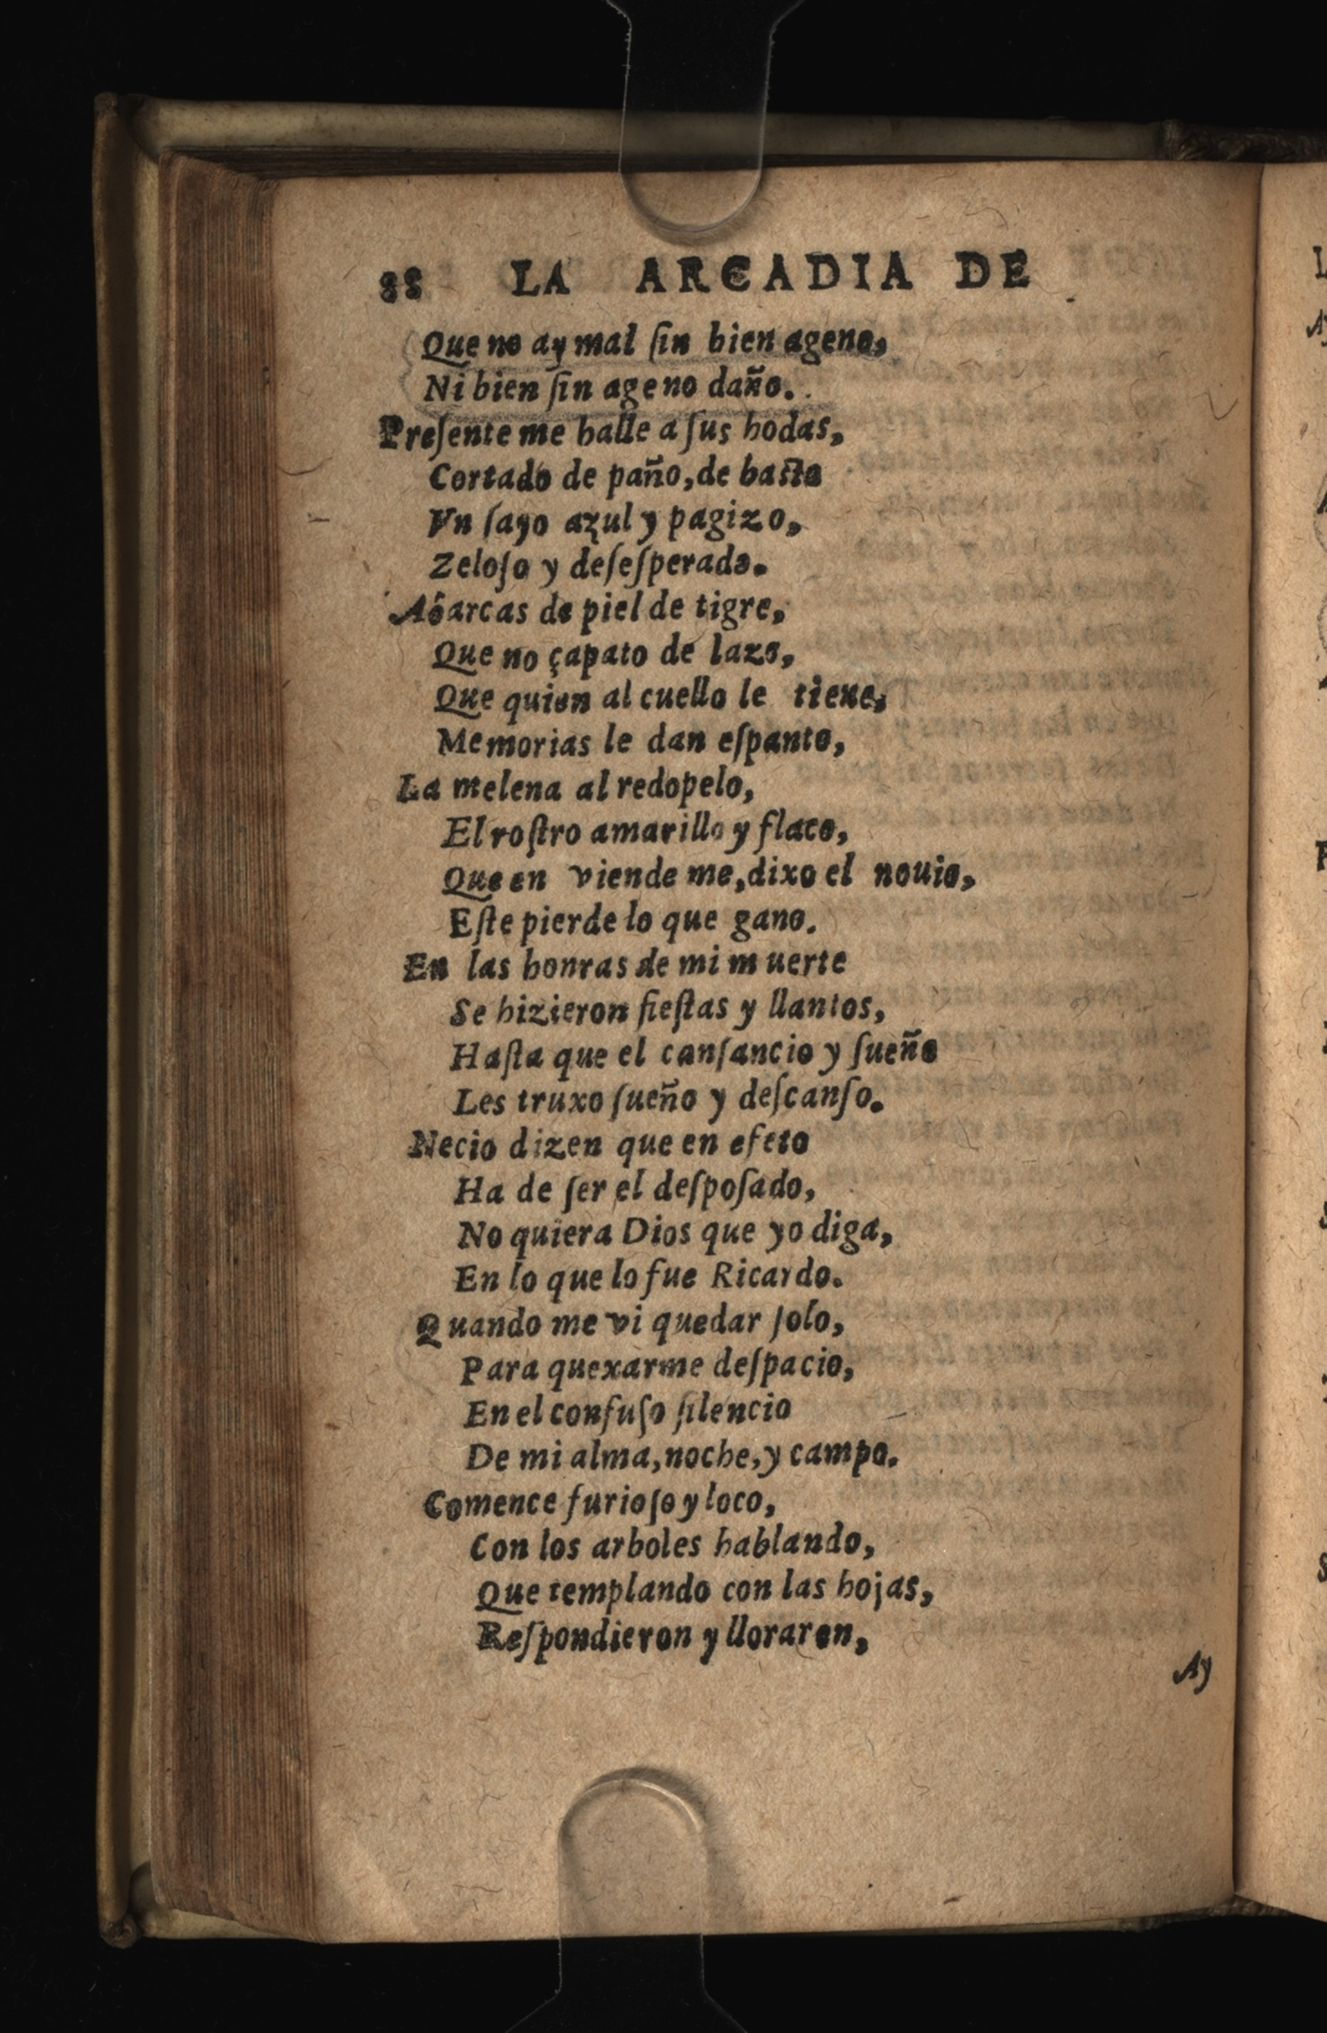 88 LA ARCADIA DE
Que no ay mal ſin bien ageno,
Ni bien ſin ageno daño.
Preſente me halle a ſus bodas,
Cortado de paño, de baſto
Vn ſayo azul y pagizo,
Zeloſo y deſeſperado.
Abarcas de piel de tigre,
Que no çapato de lazo,
Que quien al cuello le tiene,
Memorias le dan eſpanto,
La melena al redopelo,
El roſtro amarillo y flaco,
Que en viende me, dixo el nouio,
Eſte pierde lo que gano.
En las honras de mi muerte
Se hizieron fieſtas y llantos,
Haſta que el canſancio y ſueño
Les truxo ſueño y deſcanſo.
Necio dizen que en efeto
Ha de ſer el deſpoſado,
No quiera Dios que yo diga,
En lo que lo fue Ricardo.
Quando me vi quedar ſolo,
Para quexarme deſpacio,
En el confuſo ſilencio
De mi alma, noche, y campo.
Comence furioſo y loco,
Con los arboles hablando,
Que templando con las hojas,
Reſpondieron y lloraren,
Ay